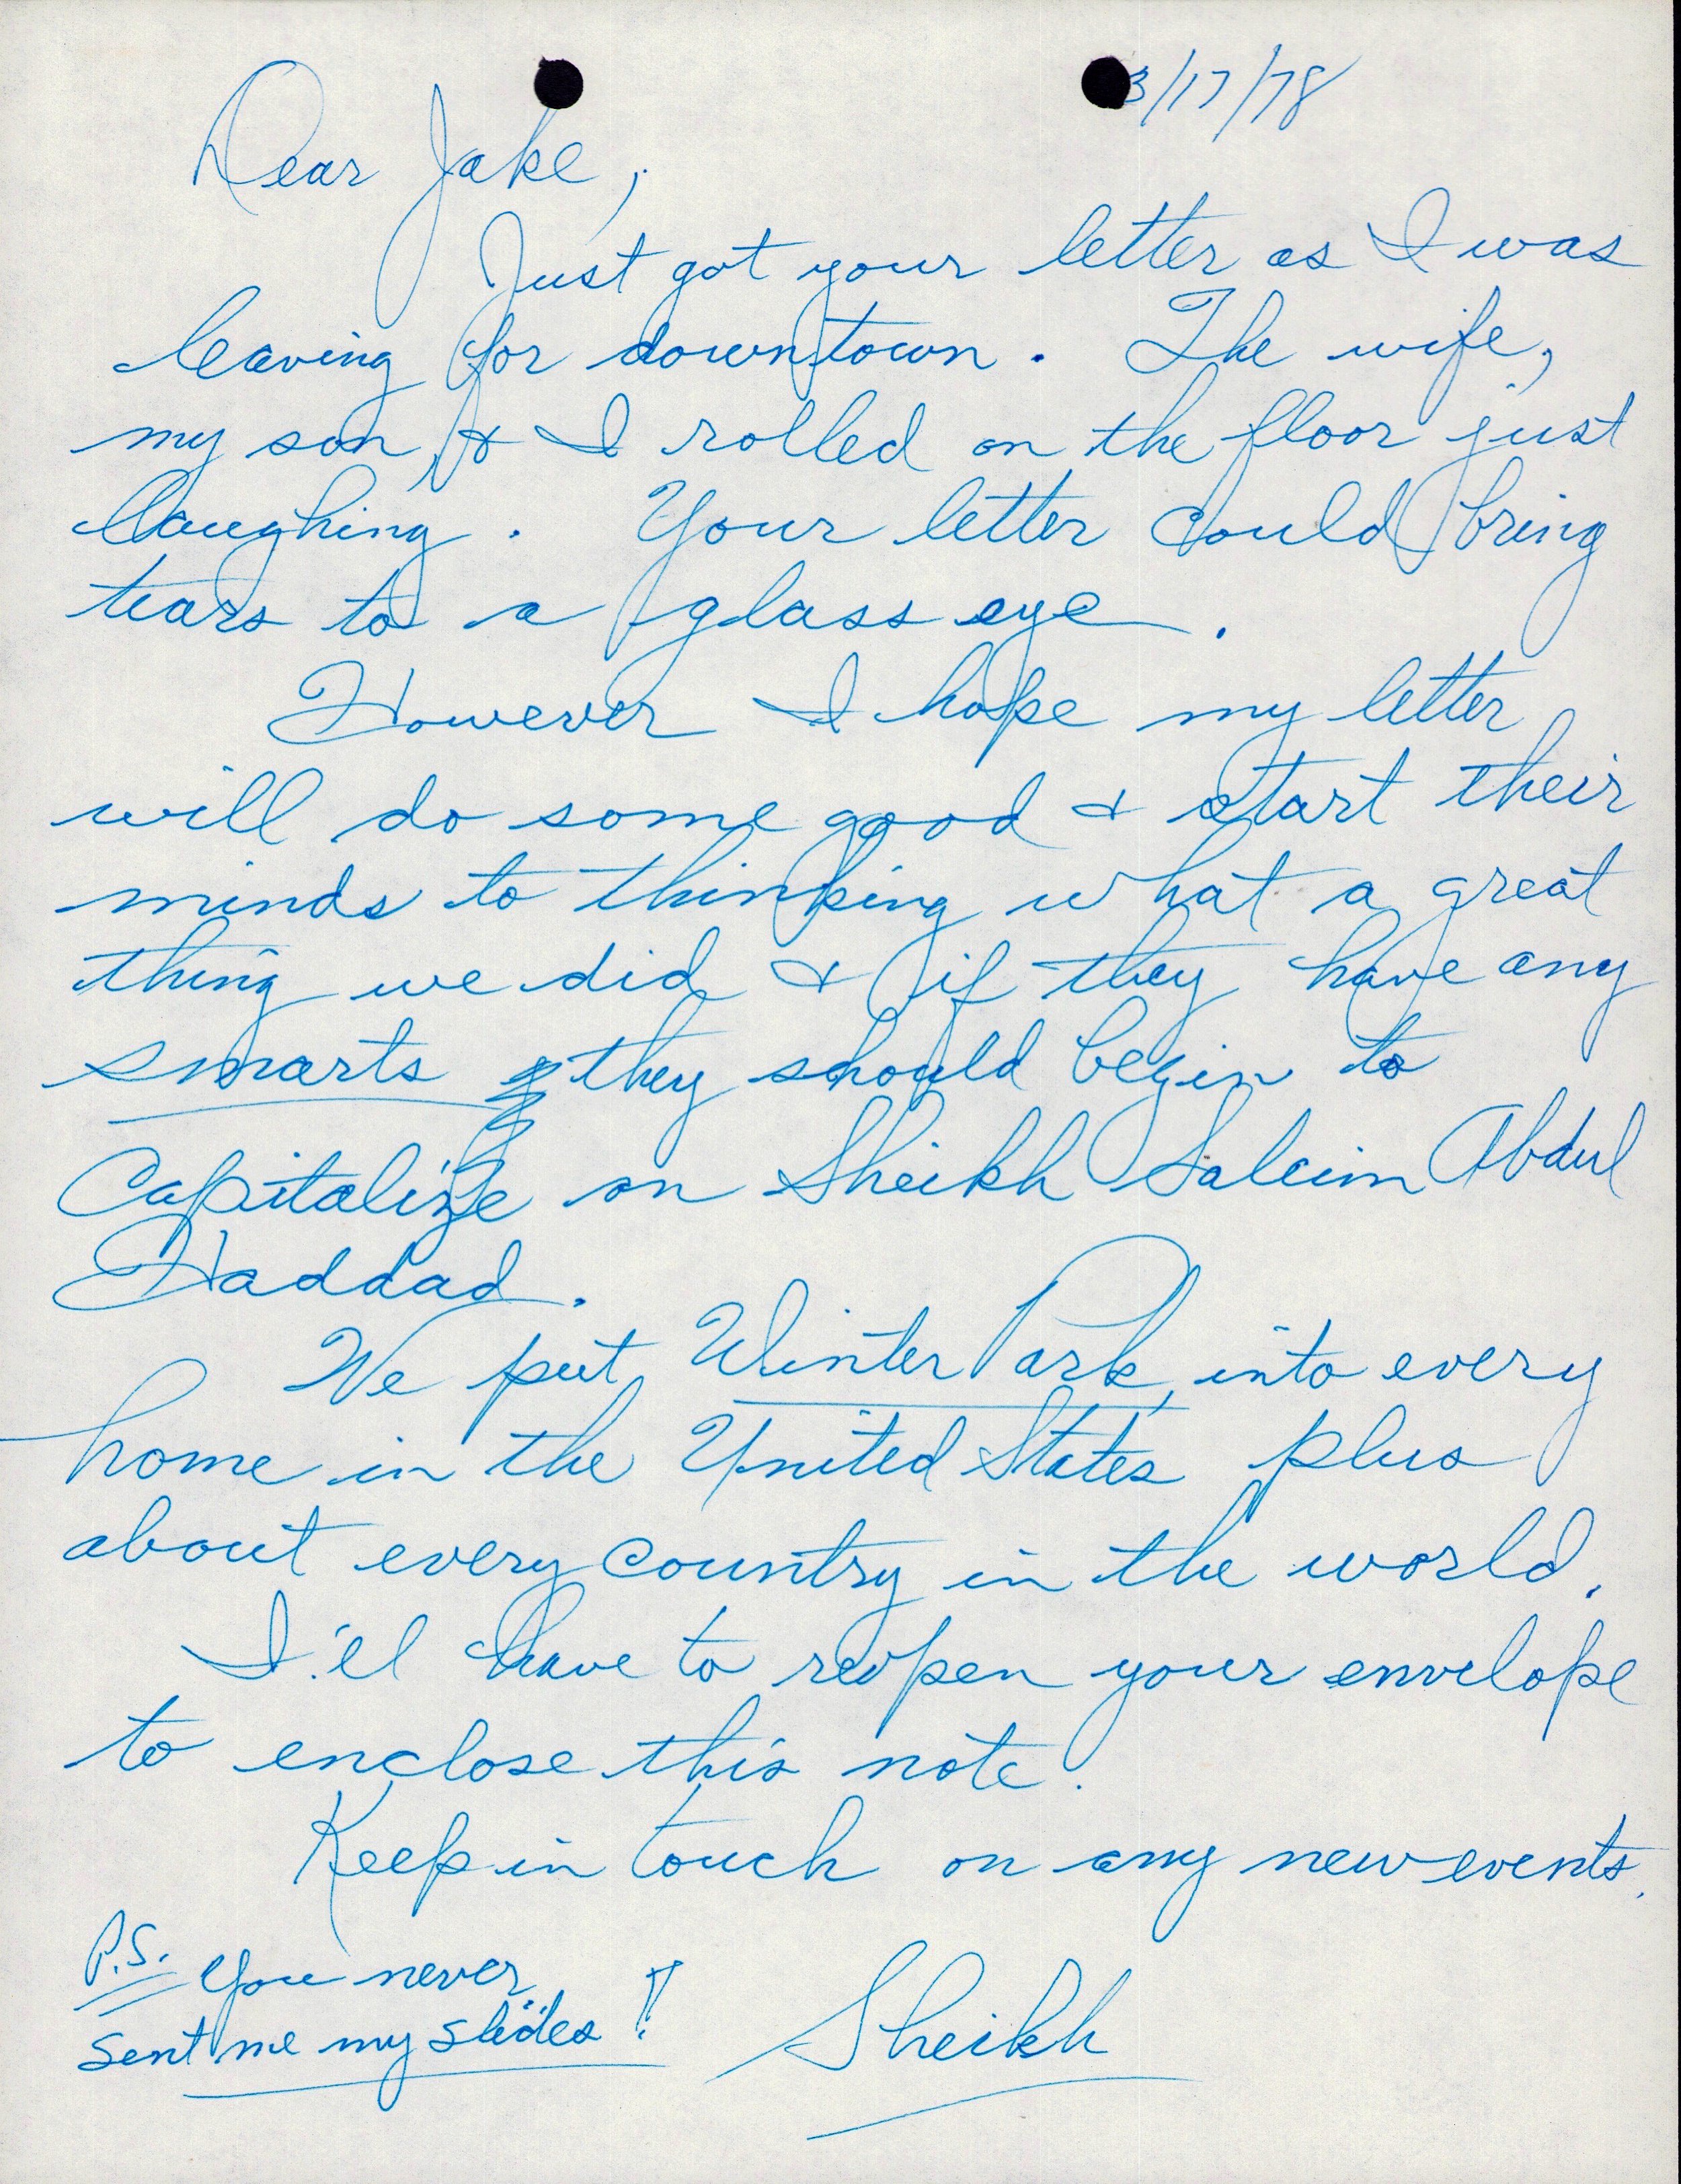 3/17/78
Dear Jake,
Just got your letter as I was
leaving for downtown. The wife,
my son, & I rolled on the floor just
laughing. Your letter could bring
tears to a glass eye.
However I hope my letter
will do some good & start their
minds to thinking what a great
thing we did & if they have any
smarts they should begin to
Capitalize on Sheikh Saleim Abdul
Haddad.
We put Winter Park, into every
home in the United States plus
about every country in the world.
I'll have to reopen your envelope
to enclose this note.
Keep in touch on any new events.
P.S. You never
sent me my slides!
Sheikh